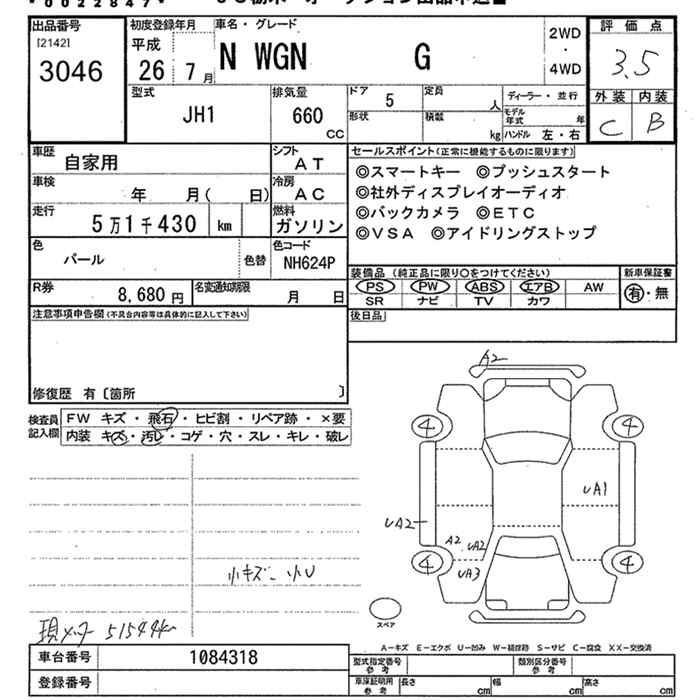 *0022847*
出品番号
[2142]
3046
初度登録年月
平成
26年 7月
車名・グレード
N WGN G
2WD
・
4WD
評価点
3.5
外装 内装
C B
型式
JH1
排気量
660
CC
ドア
5
定員
人
形状
積載
kg
ディーラー・並行
モデル年式 年
ハンドル 左・右
車歴
自家用
シフト
AT
車検
年 月( 日)
冷房
AC
走行
5万1千430 km
燃料
ガソリン
色
パール
色替
色コード
NH624P
R券
8,680円
名変通知期限
月 日
セールスポイント(正常に機能するものに限ります)
◎スマートキー ◎プッシュスタート
◎社外ディスプレイオーディオ
◎バックカメラ ◎ETC
◎VSA ◎アイドリングストップ
装備品 (純正品に限り○をつけてください)
PS PW ABS エアB AW
SR ナビ TV カワ
新車保証書
有・無
後日品
注意事項申告欄(不具合内容等は具体的に記入して下さい)
修復歴 有〔箇所 〕
検査員
記入欄
FW キズ・飛石・ヒビ割・リペア跡・×要
内装 キズ・汚レ・コゲ・穴・スレ・キレ・破レ
小キズ 小U
現メーター 51544km
A2
4
4
UA1
UA2
A2
UA2
UA3
4
4
スペア
A－キズ E－エクボ U－凹み W－補修跡 S－サビ C－腐食 XX－交換済
車台番号
1084318
登録番号
型式指定番号
参考
類別区分番号
参考
車庫証明用
参考
長さ cm
幅 cm
高さ cm